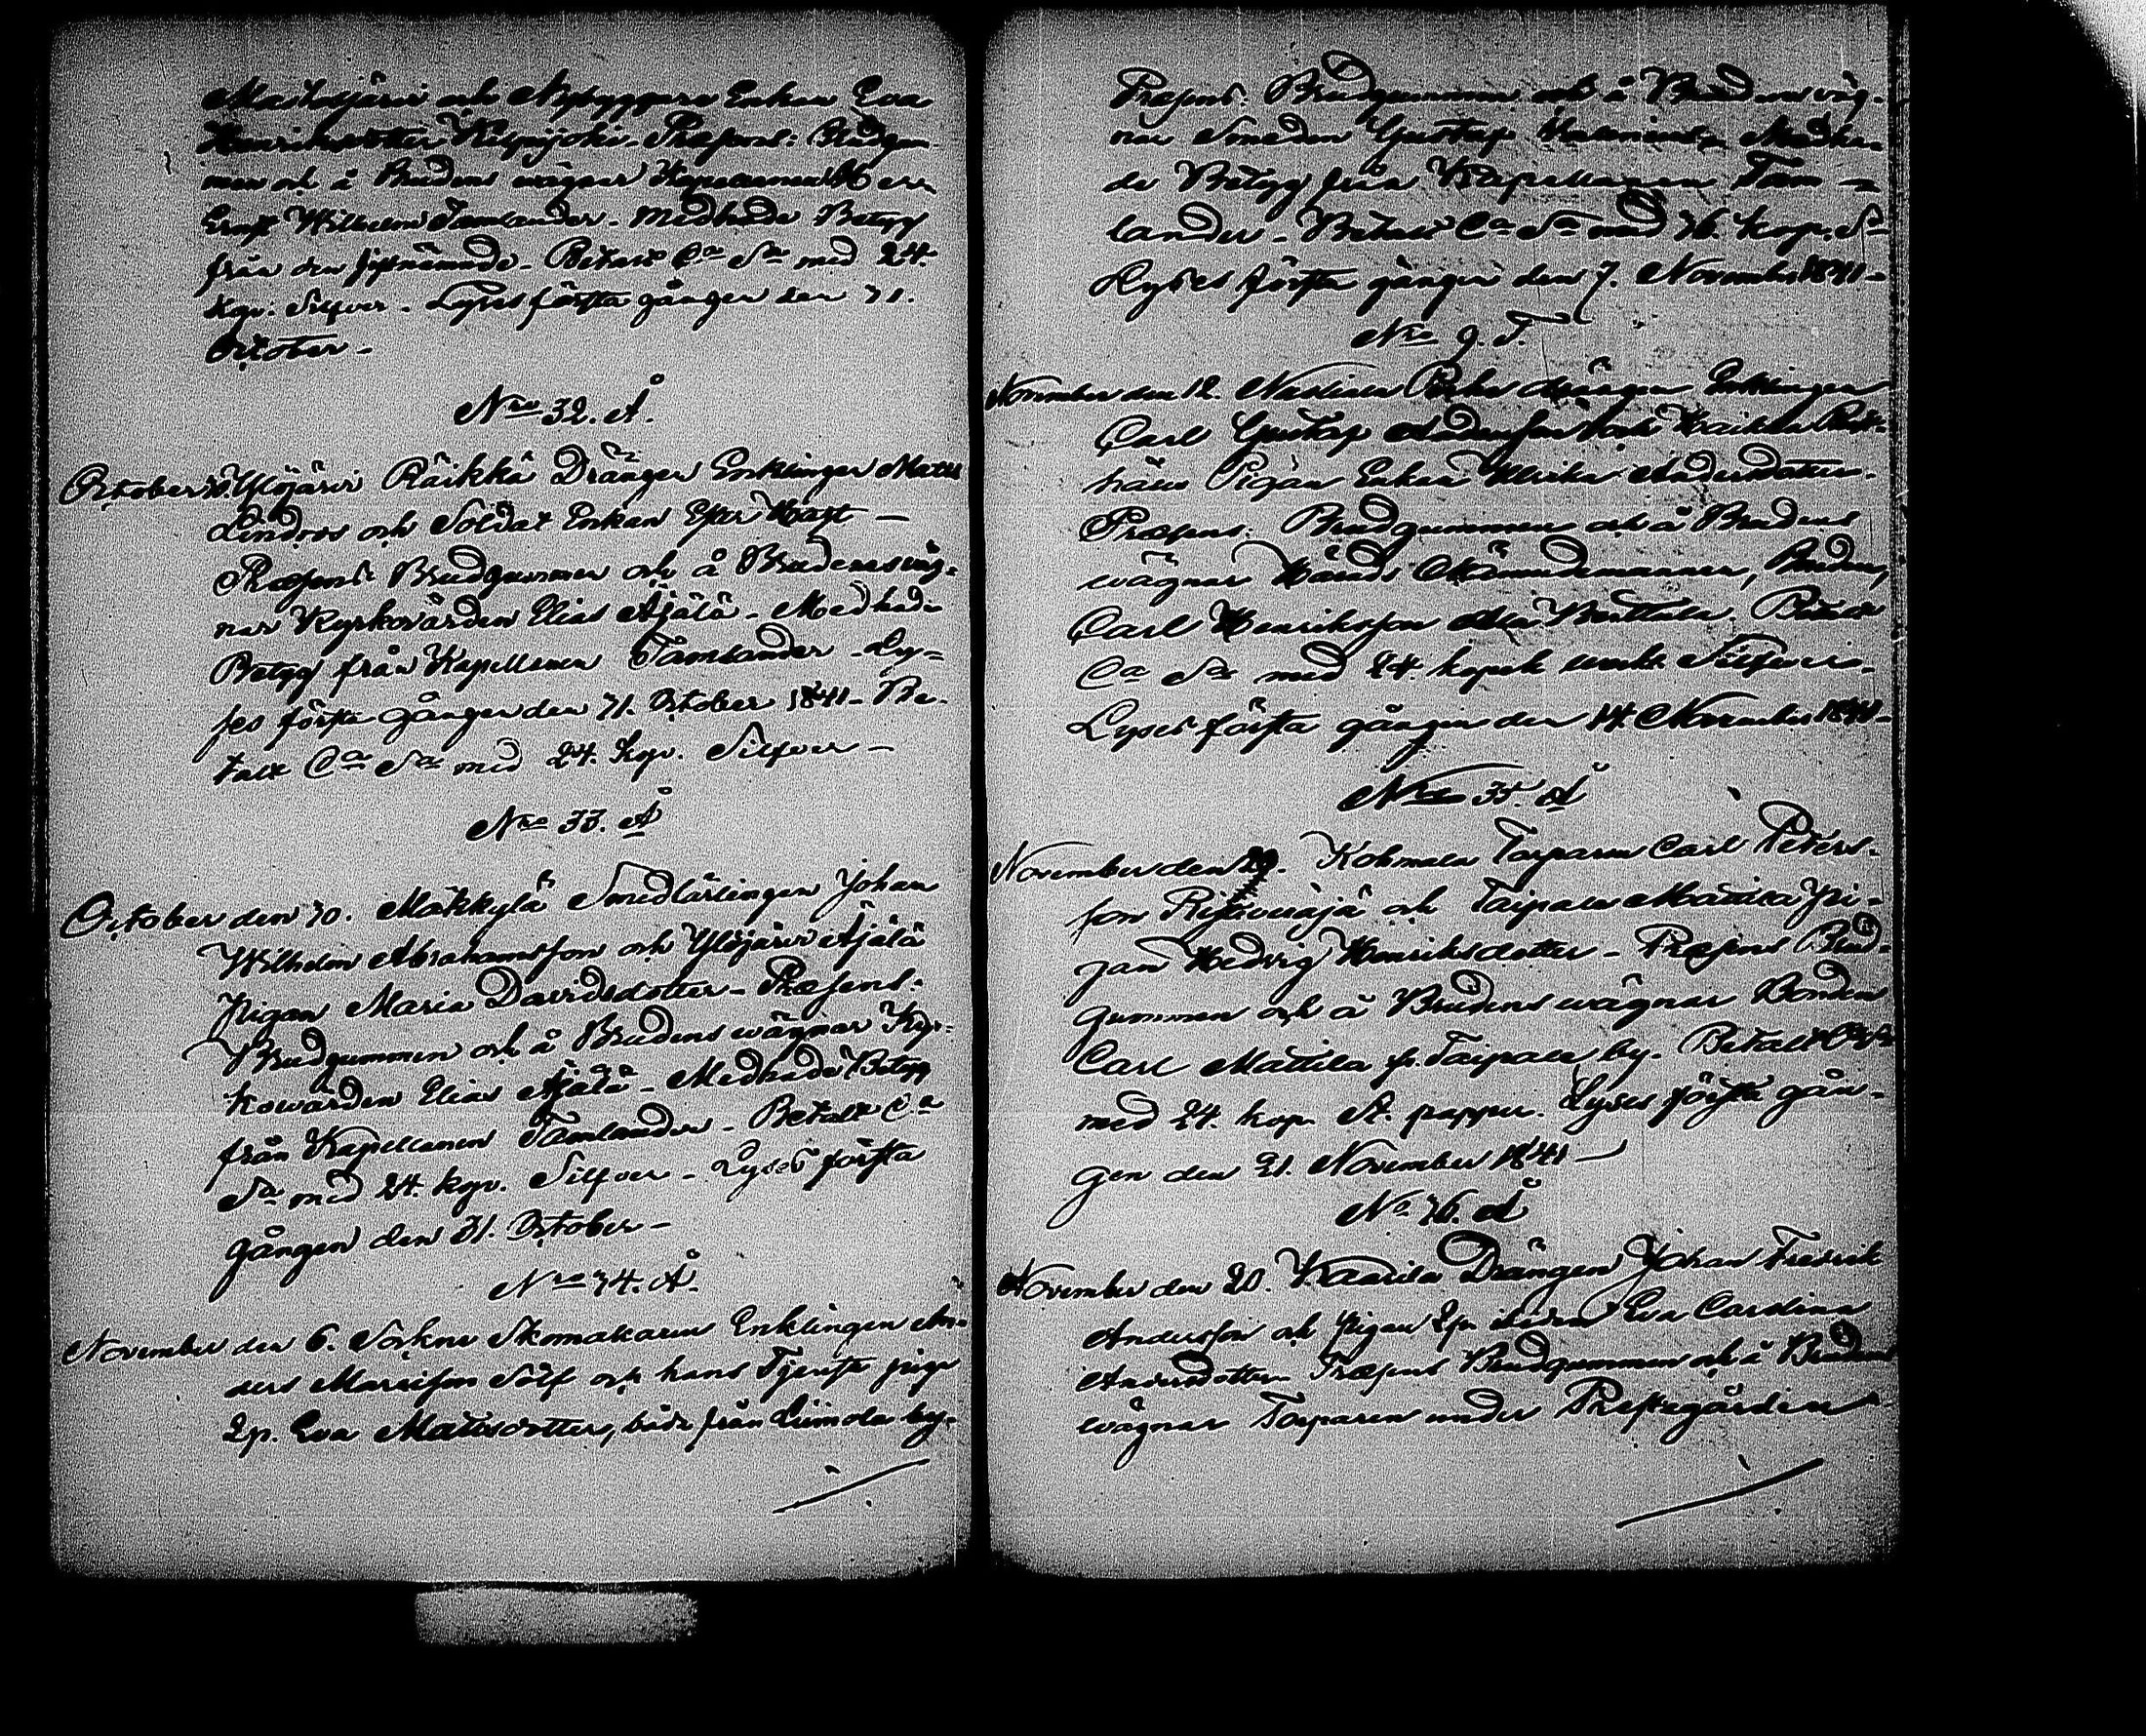 och Nybyggare Enkan Eva
Henriksdotter Præsens: Brudgum-
men och å Brudens wägnar
Ernst Wilhelm Tamlander - Medhade Betyg
från den sistnämnde - Betalt Ca Sa med 24.
kop: Silfver - Lyses första gången den 31.
October -
Nro 32. Å.
October 30. Ylöjärvi Räikkä Drängen Enklingen Matts
Lindroos och Soldat Enkan Ester
Præsens Brudgummen och å Brudens wäg-
nar Kyrkovärden Elias Äjälä - Medhade
Betyg från Kapellanen Tamlander - Ly-
ses första gången den 31. October 1841 - Be-
talt Ca Sa med 24. kop. Silfver -
Nro 33. Å
October den 30. Mäkkylä Smedlärlingen Johan
Wilhelm Abrahamsson och Ylöjärvi Äjälä
pigan Maria Davidsdotter - Præsens:
Brudgummen och å Brudens wägnar Kyr-
kowärden Elias Äjälä - Medhade Betyg
från Kapellanen Tamlander - Betalt Ca
Sa med 24. kop. Silfver - Lyses första
gången den 31. October -
Nro 34. Å.
November den 6. Sockne Skomakaren Enklingen An-
ders Mattsson Sölf och hans Tjenste piga
Ep. Eva Mattsdotter, både från Liimola by -
Præsens: Brudgummen och å Brudens wäg-
nar Smeden Gustaf Medha-
de Betyg från Kapellanen Tam-
lander - Betalt Ca Sa med 36. kop. Sr
Lyses första gången den 7. November 1841 -
Nro 9. T.
November den 12. drängen Enklingen
Carl Gustaf Andersson och
Pigan Enkan Ulrika Andersdotter.
Præsens: Brudgummen och å Brudens
wägnar Härads Nämndemannen, Bonden,
Carl Henriksson Betalt
Ca Sa med 24. kopek Silfver -
Lyses första gången den 14. November 1841 -
Nro 35. Å
November den 20. Kohmala Torparen Carl Peters-
son och Taipale Mattila pi-
gan Hedvig Henriksdotter - Præsens Brud-
gummen och å Brudens wägnar Bonden
Carl Mattila fr. Taipale by. Betalt Ca Sa
med 24. kop. St. papper. Lyses första gån-
gen den 21. November 1841 -
No 36. Å
November den 20. Kaarila Drängen Johan Fredrik
Andersson och Pigan Ep. Eva Carolina
Andersdotter. Præsens Brudgummen och å Brudens
wägnar Torparen under Prestegården